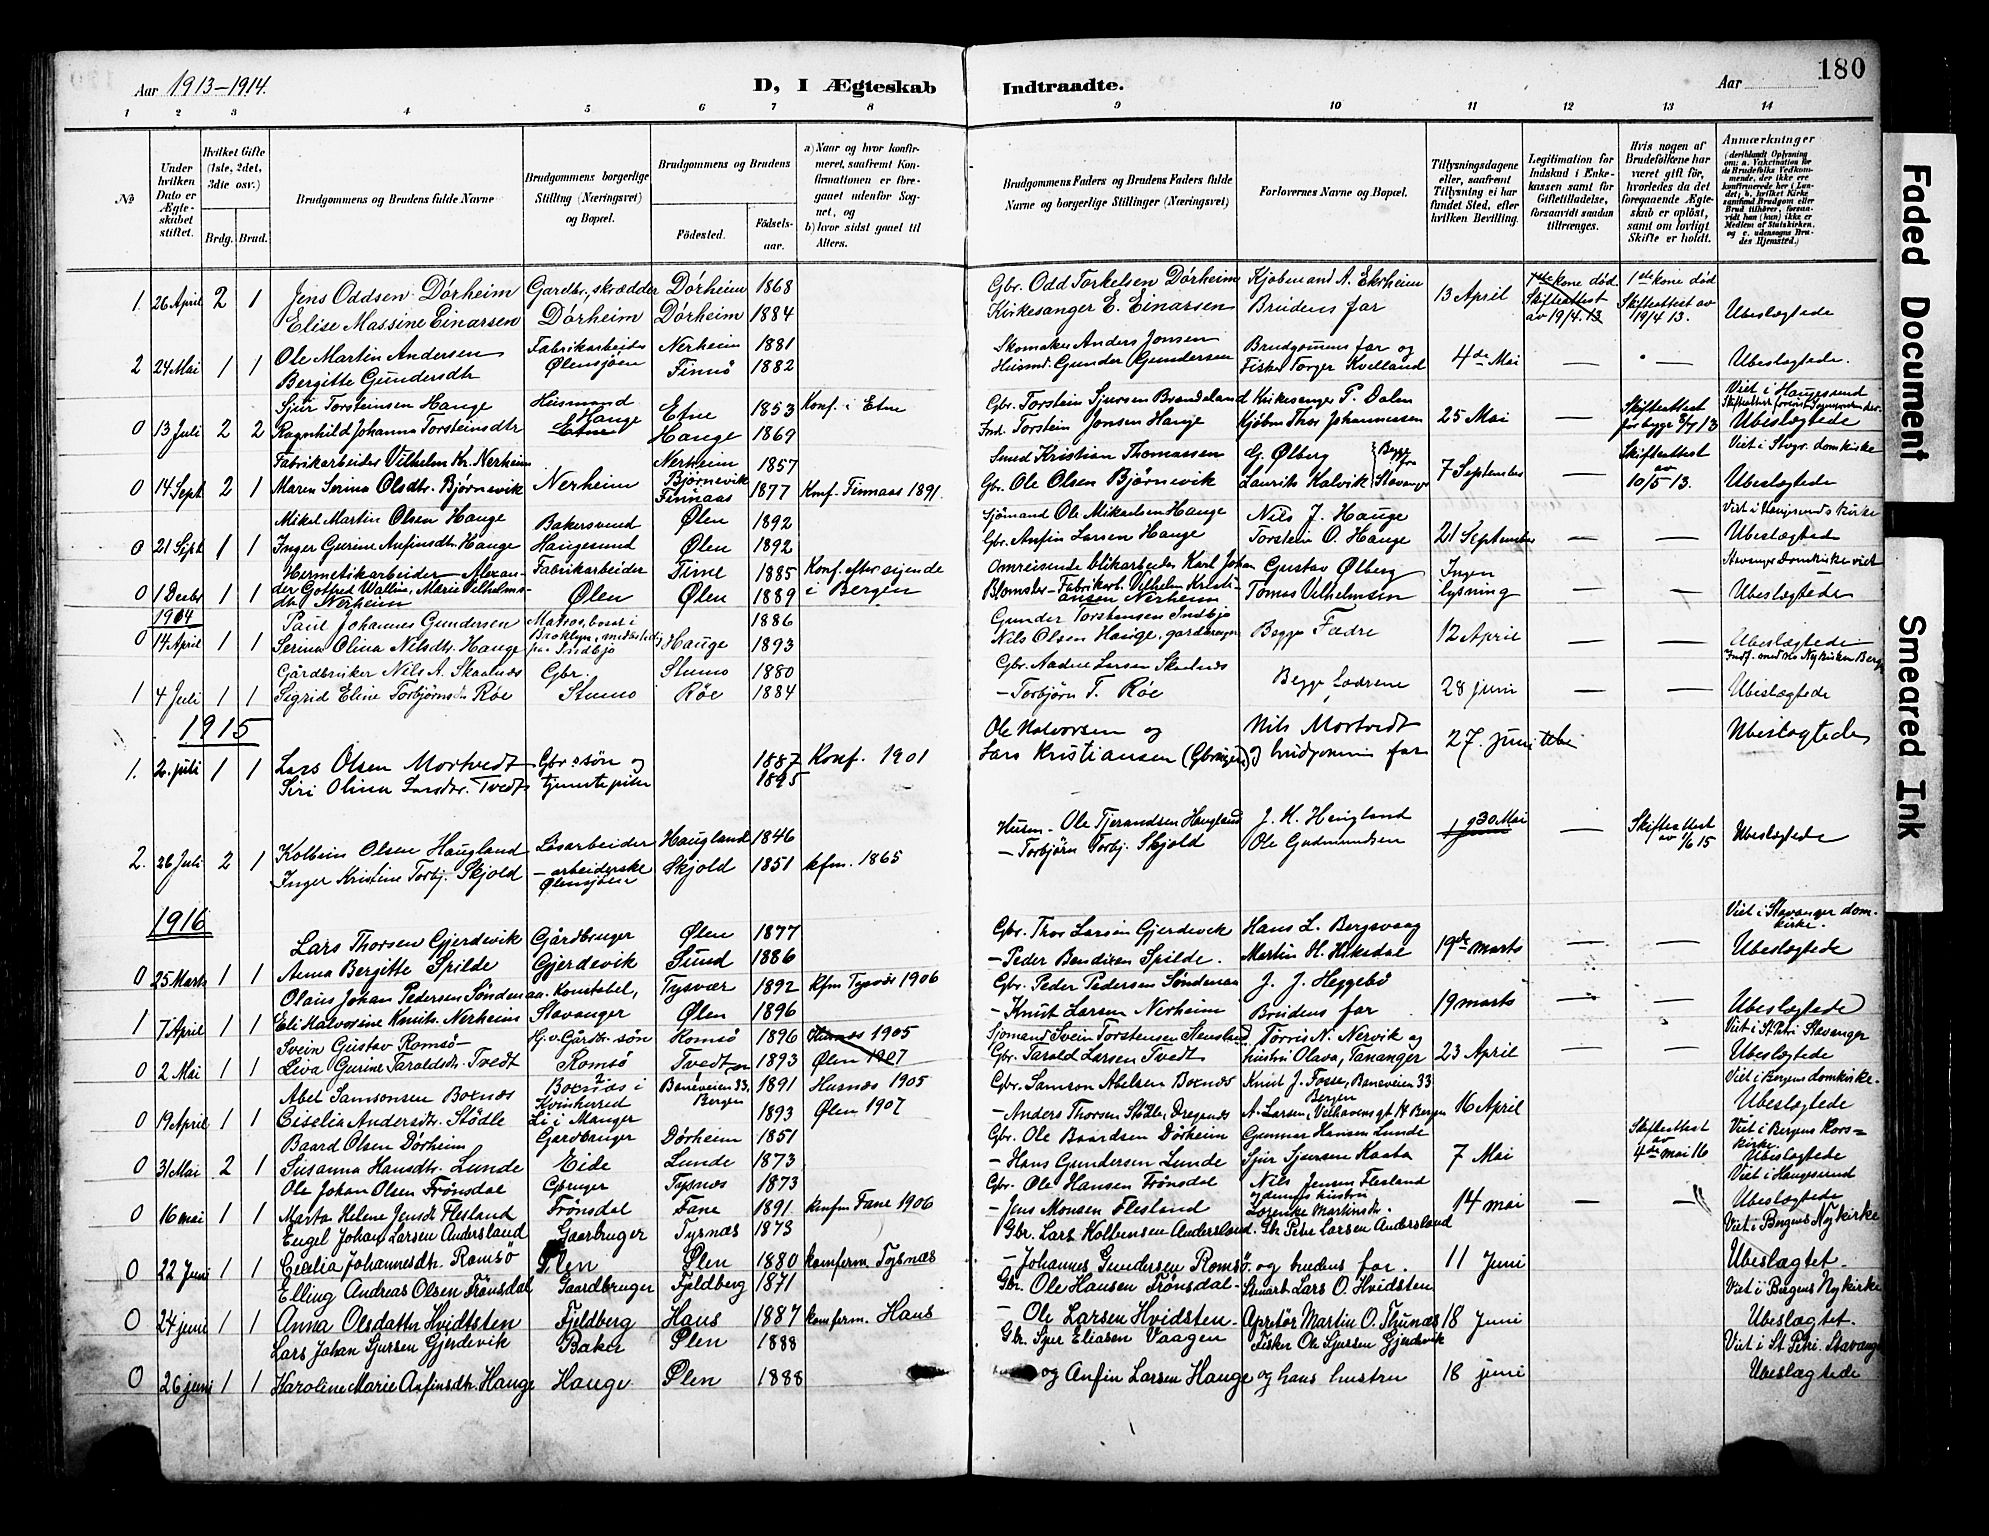 Aar 1913-1914.
D, I Ægteskab Indtraadte.
Aar
180
1 2 3 4 5 6 7 8 9 10 11 12 13 14
No
Under hvilken Dato er Ægteskabet stiftet.
Hvilket Gifte (1ste, 2det, 3die osv.)
Brdg. Brud.
Brudgommens og Brudens fulde Navne
Brudgommens borgerlige Stilling (Næringsvei) og Bopæl.
Brudgommens og Brudens
Födested. Födselsaar.
a) Naar og hvor konfirmeret, saafremt Konfirmationen er foregaaet udenfor Sognet, og
b) hvor sidst gaaet til Alters.
Brudgommens Faders og Brudens Faders fulde Navne og borgerlige Stillinger (Næringsvei)
Forlovernes Navne og Bopæl.
Tillysningsdagene eller, saafremt Tillysning ei har fundet Sted, efter hvilken Bevilling.
Legitimation for Indskud i Enkekassen samt for Giftetilladelse, forsaavidt saadan tiltrænges.
Hvis nogen af Brudefolkene har været gift før, hvorledes da det foregaaende Ægteskab er oplöst, samt om lovligt Skifte er holdt.
Anmærkninger
(deriblandt Oplysning om: a. Vakcination for de Brudefolks Vedkommende, der ikke ere konfirmerede her i Landet; b. hvilket Kirkesamfund Brudgom eller Brud tilhörer, forsaavidt han (hun) ikke er Medlem af Statskirken, og c. udensogns Brudes Hjemsted.)
1. 26 April 2 1 Jens Oddsen Dórheim Gardbr., skrædder Dórheim 1868 Gbr. Odd Torkelsen Dórheim Kjøbmand A. Ekrheim 13 April 1ste kone død Skifteattest av 19/4.13 1ste kone død Skifteattest av 19/4 13. Ubeslægtede
Elise Massine Einarsen Dórheim Dórheim 1884 Kirkesanger E. Einarsen Brudens far
2 24 Mai 1 1 Ole Martin Andersen Fabrikarbeider Nerheim 1881 Skomaker Anders Jonsen Brudgomens far og 4de Mai — — Ubeslægtede.
Bergitte Gundersdtr Ølensjøen Finnö 1882 Husmd. Gunder Gundersen Fisker Torger Kvelland
0 13 Juli 2 2 Sjur Torsteinsen Hauge Husmand Hauge Etne Etne 1853 Konf. i Etne Gbr. Torstein Sjursen Brandeland Kirkesanger P. Dalen 25 Mai — Skifteattest Viet i Haugesund
Ragnhild Johanna Torsteinsdtr Hauge 1869 Torstein Jonsen Hauge Kjøbm Thor Johannessen Ubeslægtede
0 14 Sept 2 1 Fabrikarbeider Vilhelm Kr. Nerheim Nerheim Nerheim 1857 Smed Kristian Thomassen G. Ølberg Begge fra Stavanger 7 September — Skifteattest av 10/5 13. Viet i Stvgr. domkirke
Maren Serina Olsdtr. Bjørnevik Bjørnevik Finnaas 1877 Konf. Finnaas 1891. Gbr. Ole Olsen Bjørnevik Laurits Kalvik Ubeslægtede
0 21 Sept 1 1 Mikal Martin Olsen Hauge Bakersvend Ølen 1892 Sjömand Ole Mikaelsen Hauge Nils J. Hauge 21 September — — Viet i Haugesunds kirke
Inger Gurine Anfinsdtr. Hauge Haugesund Ølen 1892 Gbr. Anfin Larsen Hauge Torstein O. Hauge Ubeslægtede
0 1 Decbr 1 1 Hermetikarbeider Alexander Gotfred Wallin Fabrikarbeider Time 1885 Konf. efter sigende i Bergen Omreisende blikarbeider Karl Johan Blomster Gustav Ølberg Ingen lysning — — Stavanger Domkirke viet
Marie Vilhelmsdtr Nerheim Ølen Ølen 1889 Fabrikarb. Vilhelm Kristiansen Nerheim Tomas Vilhelmsen Ubeslægtede
1904
0 14 April 1 1 Paul Johannes Gundersen Matros, boset i Broklyn, 1886 Gunder Torstensen Indbjo Begge Fædre 12 April — — Ubeslægtede
Serina Olina Nilsdtr. Hauge Hauge 1893 Nils Olsen Hauge,
1 4 Juli 1 1 Gårdbruker Nils A. Skaalnæs Gbr. Stumo 1880 Gbr. Aadne Larsen Skaalnæs Begge Fædrene 28 juni — — Ubeslægtede
Sigrid Eline Torbjørnsdr. Røe Stumo Røe 1884 — Torbjörn T. Røe
1915
1. 2. juli 1 1 Lars Olsen Mortvedt Gbr søn og 1887 Konf. 1901 Ole Halvorsen og Nils Mortvedt 27. juni Ubeslægtede
Siri Olina Larsdtr. Tvedt tjenestepike 1895 Lars Kristiansen og brudgommens far
2. 26 Juli 2 1 Kolbein Olsen Haugland Løsarbeider Haugland 1846 Husm. Ole Tjerandsen Haugland J. H. Haugland 30 Mai — Skifteattest av 1/6 15 Ubeslægtede
Inger Kristine Torbj. Skjold — arbeiderske Ølensjøen Skjold 1851 kfm. 1865 — Torbjörn Torbj. Skjold Ole Gudmundsen
1916
0 25 Marts 1 1 Lars Thorsen Gjerdevik Gårdbruger Ølen 1877 Gbr. Thor Larsen Gjerdevik Hans L. Bergsvaag 19de marts — — Viet i Stavanger domkirke.
Anna Bergitte Spilde Gjerdevik Sund 1886 — Peder Bendixen Spilde. Martin H. Eiksdal Ubeslægtede
1 7 April 1 1 Olaus Johan Pedersen Söndenaa. Konstabel, Tysvær 1892 kfm Tysvær 1906 Gbr. Peder Pedersen Söndenaa J. J. Heggebö 19 marts — — Ubeslægtede
Eli Halvorine Knuts. Nerheim Stavanger Ølen 1896 — Knut Larsen Nerheim Brudens far
0 2 Mai 1 1 Svein Gustav Romsö Hj. v. Gårdbr. søn Romsö 1896 Husnæs 1905 Sjömand Svein Torstensen Torris N. Nervik og 23 April — — Viet i St. Petri Stavanger
Liva Gurine Taraldsdtr. Tvedt Romsö Tvedt 1893 Ølen 1907 Gbr. Tarald Larsen Tvedt hustru Olava, Tananger Ubeslægtede
0 19 April 1 1 Abel Samsonsen Boenæs Boenæs i Kvinherred Baneveien 33, Bergen 1891 Husnæs 1905 Gbr. Samson Abelsen Boenæs Knut J. Fosse, Baneveien 33 Bergen 16 April Viet i Bergens domkirke.
Eiselia Andersdtr. Stödle Li i Manger 1893 Ølen 1907 — Anders Thorsen Stödle, Dregenæs A. Larsen, Velhavensgt. 14 Bergen Ubeslægtede
0 31 Mai 2 1 Baard Olsen Dörheim Gardbruger Dörheim 1851 Gbr. Ole Baardsen Dörheim Gunnar Hansen Lunde 7 Mai Skifteattest av 4de mai 16 Viet i Bergens Korskirke.
Susanna Hansdtr. Lunde Eide Lunde 1873 — Hans Gundersen Lunde Sjur Sjursen Ubeslægtede
0 16 mai 1 1 Ole Johan Olsen Frönsdal Gbruger Tysnæs 1873 Gbr. Ole Hansen Frönsdal Nils Jensen Flesland 14 mai — — Viet i Haugesund
Marta Helene Jensdt Flesland Frönsdal Fane 1891 konfm Fane 1906 — Jens Monsen Flesland og dennes hustru Lorenke Martinsdtr. Ubeslægtede
0 22 Juni 1 1 Engel Johan Larsen Andersland Gaarbruger Tysnæs 1873 Gbr. Lars Kolbensen Andersland. Gbr Peter Larsen Andersland 11 Juni Viet i Bergens Nykirke
Cecilia Johannesdtr. Romsö Ølen Ølen 1880 konferm. Tysnæs — Johannes Gundersen Romsö. og brudens far. Ubeslægtet.
0 24 juni 1 1 Elling Andreas Olsen Frönsdal Gaardbruger Fjeldberg 1871 Gbr. Ole Hansen Frönsdal Stuart Lars O. Hvidsten 18 Juni Viet i Bergens Nykirke
Anna Olsdatter Hvidtsten Fjeldberg Haus 1887 konferm. Haus — Ole Larsen Hvidsten Apretör Martin O. Thunæs Ubeslægtet.
0 26 juni 1 1 Lars Johan Sjursen Gjerdevik Baker Ølen 1888 Gbr. Sjur Eliasen Vaagen Fisker Ole Sjursen Gjerdevik 18 juni Viet i St. Petri. Stavanger
Karoline Marie Anfinsdtr. Hauge Hauge Ølen 1888 og Anfin Larsen Hauge og hans hustru Ubeslægtede
Faded Document
Smeared Ink